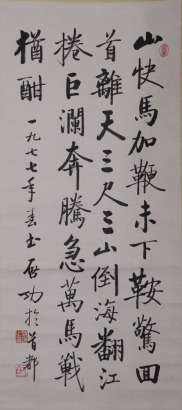 山快馬加鞭未下鞍驚回
首離天三尺三山倒海翻江
捲巨瀾奔騰急萬馬戰
猶酣一九七七年春書啟功於首都